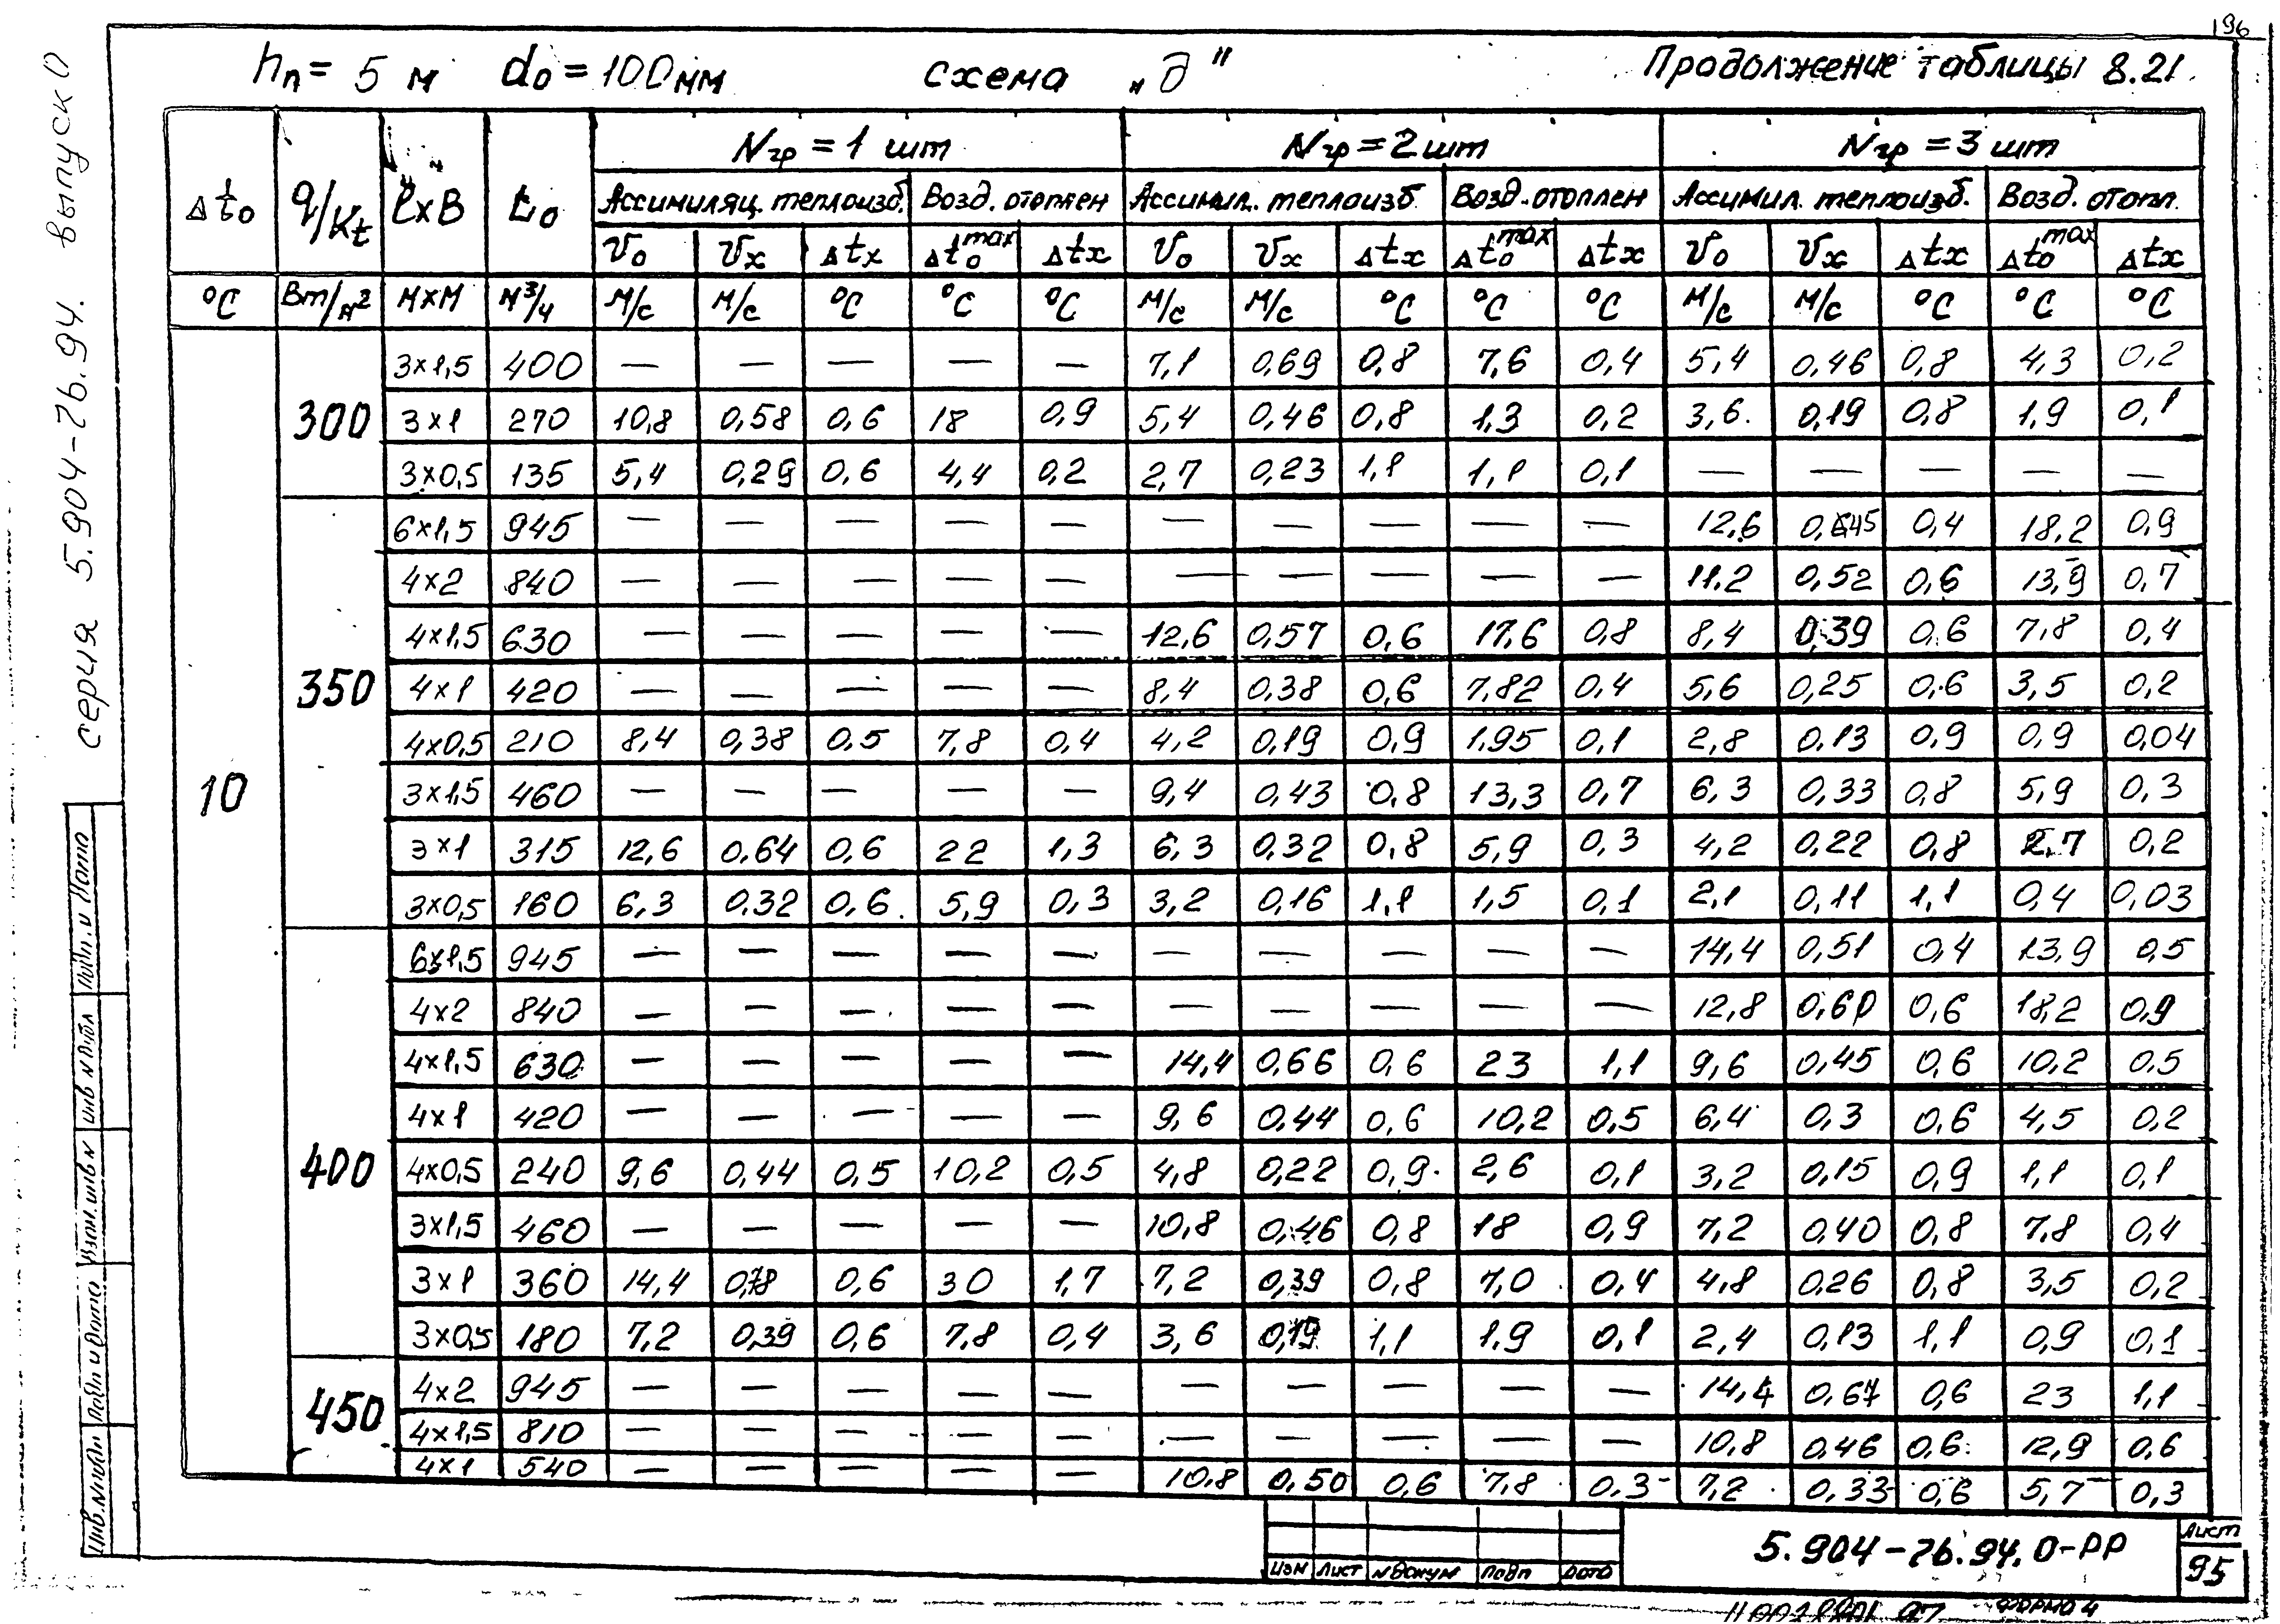 196
hп = 5 м   dо = 100 мм   схема „д"   Продолжение таблицы 8.21.
серия 5.904-76.94. выпуск 0
Δtо | q/Kt | ℓ×В | Lо | Nгр = 1 шт | Nгр = 2 шт | Nгр = 3 шт
Ассимиляц. теплоизб. | Возд. отоплен | Ассимил. теплоизб. | Возд. отоплен | Ассимил. теплоизб. | Возд. отопл.
Vо | Vх | Δtх | Δtоmax | Δtх | Vо | Vх | Δtх | Δtоmax | Δtх | Vо | Vх | Δtх | Δtоmax | Δtх
°С | Вт/м² | м×м | м³/ч | м/с | м/с | °С | °С | °С | м/с | м/с | °С | °С | °С | м/с | м/с | °С | °С | °С
10
300
3×1,5 | 400 | — | — | — | — | — | 7,1 | 0,69 | 0,8 | 7,6 | 0,4 | 5,4 | 0,46 | 0,8 | 4,3 | 0,2
3×1 | 270 | 10,8 | 0,58 | 0,6 | 18 | 0,9 | 5,4 | 0,46 | 0,8 | 1,3 | 0,2 | 3,6 | 0,19 | 0,8 | 1,9 | 0,1
3×0,5 | 135 | 5,4 | 0,29 | 0,6 | 4,4 | 0,2 | 2,7 | 0,23 | 1,1 | 1,1 | 0,1 | — | — | — | — | —
350
6×1,5 | 945 | — | — | — | — | — | — | — | — | — | — | 12,6 | | 0,4 | 18,2 | 0,9
4×2 | 840 | — | — | — | — | — | — | — | — | — | — | 11,2 | 0,52 | 0,6 | 13,9 | 0,7
4×1,5 | 630 | — | — | — | — | — | 12,6 | 0,57 | 0,6 | 17,6 | 0,8 | 8,4 | 0,39 | 0,6 | 7,8 | 0,4
4×1 | 420 | — | — | — | — | — | 8,4 | 0,38 | 0,6 | 7,82 | 0,4 | 5,6 | 0,25 | 0,6 | 3,5 | 0,2
4×0,5 | 210 | 8,4 | 0,38 | 0,5 | 7,8 | 0,4 | 4,2 | 0,19 | 0,9 | 1,95 | 0,1 | 2,8 | 0,13 | 0,9 | 0,9 | 0,04
3×1,5 | 460 | — | — | — | — | — | 9,4 | 0,43 | 0,8 | 13,3 | 0,7 | 6,3 | 0,33 | 0,8 | 5,9 | 0,3
3×1 | 315 | 12,6 | 0,64 | 0,6 | 22 | 1,3 | 6,3 | 0,32 | 0,8 | 5,9 | 0,3 | 4,2 | 0,22 | 0,8 | 2,7 | 0,2
3×0,5 | 160 | 6,3 | 0,32 | 0,6 | 5,9 | 0,3 | 3,2 | 0,16 | 1,1 | 1,5 | 0,1 | 2,1 | 0,11 | 1,1 | 0,4 | 0,03
400
6×1,5 | 945 | — | — | — | — | — | — | — | — | — | — | 14,4 | 0,51 | 0,4 | 13,9 | 0,5
4×2 | 840 | — | — | — | — | — | — | — | — | — | — | 12,8 | 0,60 | 0,6 | 18,2 | 0,9
4×1,5 | 630 | — | — | — | — | — | 14,4 | 0,66 | 0,6 | 23 | 1,1 | 9,6 | 0,45 | 0,6 | 10,2 | 0,5
4×1 | 420 | — | — | — | — | — | 9,6 | 0,44 | 0,6 | 10,2 | 0,5 | 6,4 | 0,3 | 0,6 | 4,5 | 0,2
4×0,5 | 240 | 9,6 | 0,44 | 0,5 | 10,2 | 0,5 | 4,8 | 0,22 | 0,9 | 2,6 | 0,1 | 3,2 | 0,15 | 0,9 | 1,1 | 0,1
3×1,5 | 460 | — | — | — | — | — | 10,8 | 0,46 | 0,8 | 18 | 0,9 | 7,2 | 0,40 | 0,8 | 7,8 | 0,4
3×1 | 360 | 14,4 | 0,78 | 0,6 | 30 | 1,7 | 7,2 | 0,39 | 0,8 | 7,0 | 0,4 | 4,8 | 0,26 | 0,8 | 3,5 | 0,2
3×0,5 | 180 | 7,2 | 0,39 | 0,6 | 7,8 | 0,4 | 3,6 | 0,19 | 1,1 | 1,9 | 0,1 | 2,4 | 0,13 | 1,1 | 0,9 | 0,1
450
4×2 | 945 | — | — | — | — | — | — | — | — | — | — | 14,4 | 0,67 | 0,6 | 23 | 1,1
4×1,5 | 810 | — | — | — | — | — | — | — | — | — | — | 10,8 | 0,46 | 0,6 | 12,9 | 0,6
4×1 | 540 | — | — | — | — | — | 10,8 | 0,50 | 0,6 | 7,8 | 0,3 | 7,2 | 0,33 | 0,6 | 5,7 | 0,3
Инв.№подл | Подп и дата | Взам.инв № | Инв № дубл | Подп. и дата
Изм | Лист | № докум | Подп | Дата
5.904-76.94.0-РР
Лист
95
Формат 4